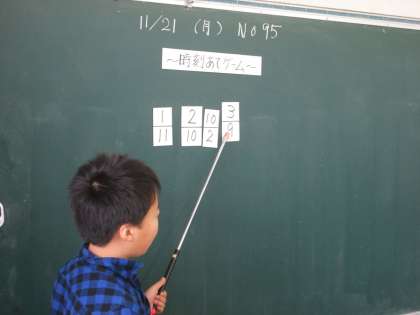 11/21 (月) No95
〜時刻あてゲーム〜
1 2 10 3
11 10 2 9